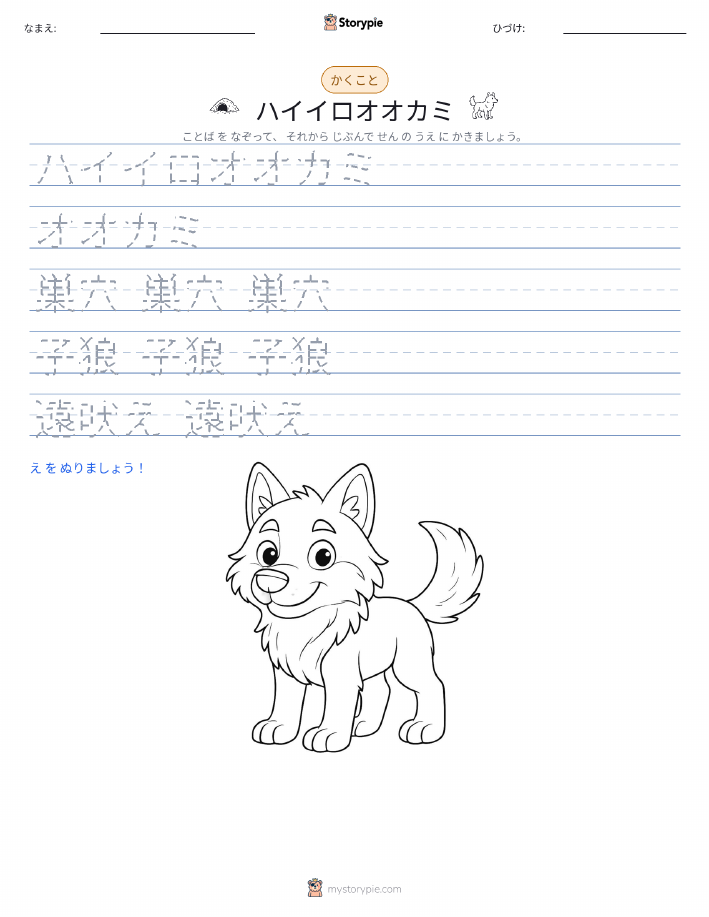 なまえ:
Storypie
ひづけ:
かくこと
ハイイロオオカミ
ことば を なぞって、 それから じぶんで せん の うえ に かきましょう。
ハイイロオオカミ
オオカミ
巣穴 巣穴 巣穴
子狼 子狼 子狼
遠吠え 遠吠え
え を ぬりましょう！
mystorypie.com